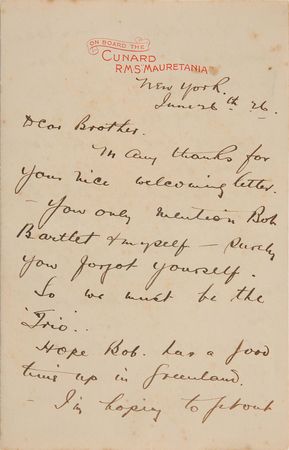 ON BOARD THE
CUNARD
R.M.S. "MAURETANIA"
New York.
June 26th 26.
Dear Brother.
Many thanks for
your nice welcoming letter.
- You only mention Bob
Bartlet & myself - surely
you forgot yourself.
So we must be the
'Trio'..
Hope Bob. has a good
time up in Greenland.
- I'm hoping to